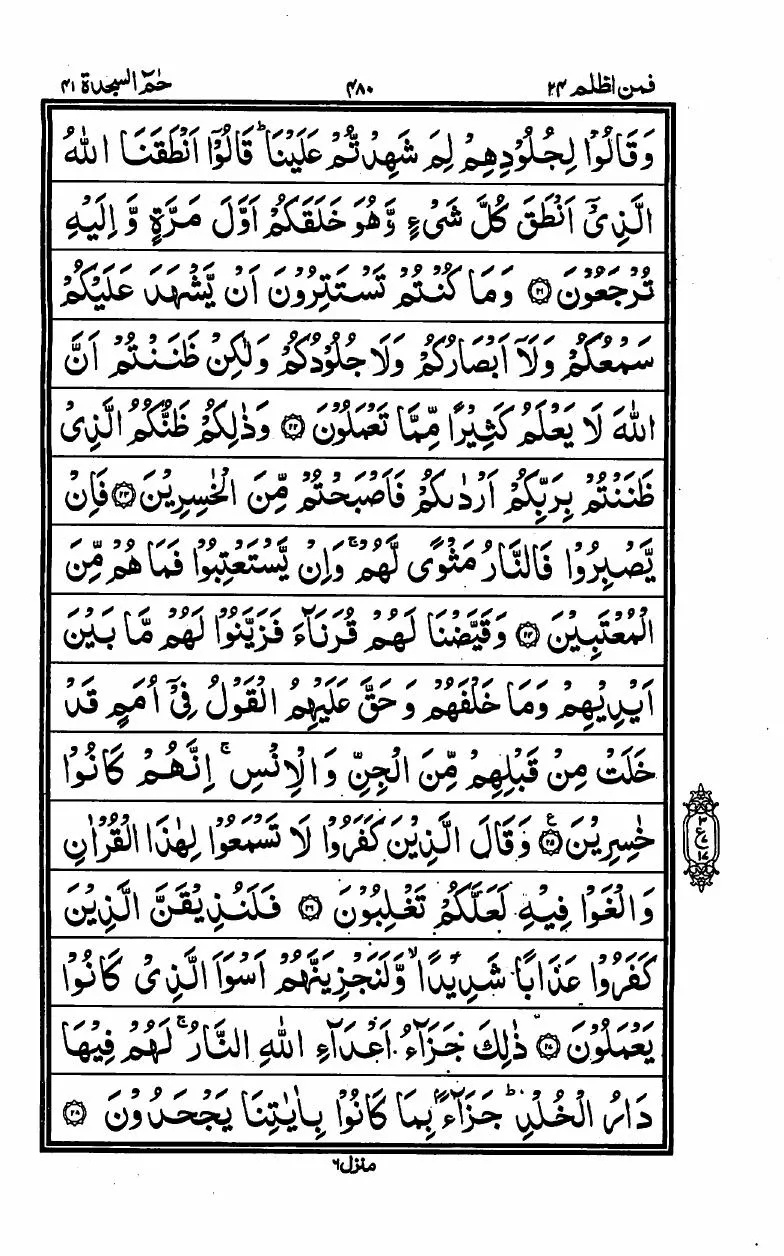 فمن اظلم ۲۴
۴۸۰
حٰمٓ السجدة ۴۱
وَقَالُوْا لِجُلُوْدِهِمْ لِمَ شَهِدْتُّمْ عَلَيْنَا ؕ قَالُوْۤا اَنْطَقَنَا اللّٰهُ
الَّذِىْۤ اَنْطَقَ كُلَّ شَىْءٍ وَّهُوَ خَلَقَكُمْ اَوَّلَ مَرَّةٍ وَّ اِلَيْهِ
تُرْجَعُوْنَ ۲۱ وَمَا كُنْتُمْ تَسْتَتِرُوْنَ اَنْ يَّشْهَدَ عَلَيْكُمْ
سَمْعُكُمْ وَلَاۤ اَبْصَارُكُمْ وَلَا جُلُوْدُكُمْ وَلٰكِنْ ظَنَنْتُمْ اَنَّ
اللّٰهَ لَا يَعْلَمُ كَثِيْرًا مِّمَّا تَعْمَلُوْنَ ۲۲ وَذٰلِكُمْ ظَنُّكُمُ الَّذِىْ
ظَنَنْتُمْ بِرَبِّكُمْ اَرْدٰىكُمْ فَاَصْبَحْتُمْ مِّنَ الْخٰسِرِيْنَ ۲۳ فَاِنْ
يَّصْبِرُوْا فَالنَّارُ مَثْوًى لَّهُمْ ۚ وَاِنْ يَّسْتَعْتِبُوْا فَمَا هُمْ مِّنَ
الْمُعْتَبِيْنَ ۲۴ وَقَيَّضْنَا لَهُمْ قُرَنَآءَ فَزَيَّنُوْا لَهُمْ مَّا بَيْنَ
اَيْدِيْهِمْ وَمَا خَلْفَهُمْ وَحَقَّ عَلَيْهِمُ الْقَوْلُ فِىْۤ اُمَمٍ قَدْ
خَلَتْ مِنْ قَبْلِهِمْ مِّنَ الْجِنِّ وَالْاِنْسِ ۚ اِنَّهُمْ كَانُوْا
خٰسِرِيْنَ ۲۵ ع وَقَالَ الَّذِيْنَ كَفَرُوْا لَا تَسْمَعُوْا لِهٰذَا الْقُرْاٰنِ
وَالْغَوْا فِيْهِ لَعَلَّكُمْ تَغْلِبُوْنَ ۲۶ فَلَنُذِيْقَنَّ الَّذِيْنَ
كَفَرُوْا عَذَابًا شَدِيْدًا ۙ وَّلَنَجْزِيَنَّهُمْ اَسْوَاَ الَّذِىْ كَانُوْا
يَعْمَلُوْنَ ۲۷ ذٰلِكَ جَزَآءُ اَعْدَآءِ اللّٰهِ النَّارُ ۚ لَهُمْ فِيْهَا
دَارُ الْخُلْدِ ؕ جَزَآءًۢ بِمَا كَانُوْا بِاٰيٰتِنَا يَجْحَدُوْنَ ۲۸
منزل ۶
۳
ع
۱۷